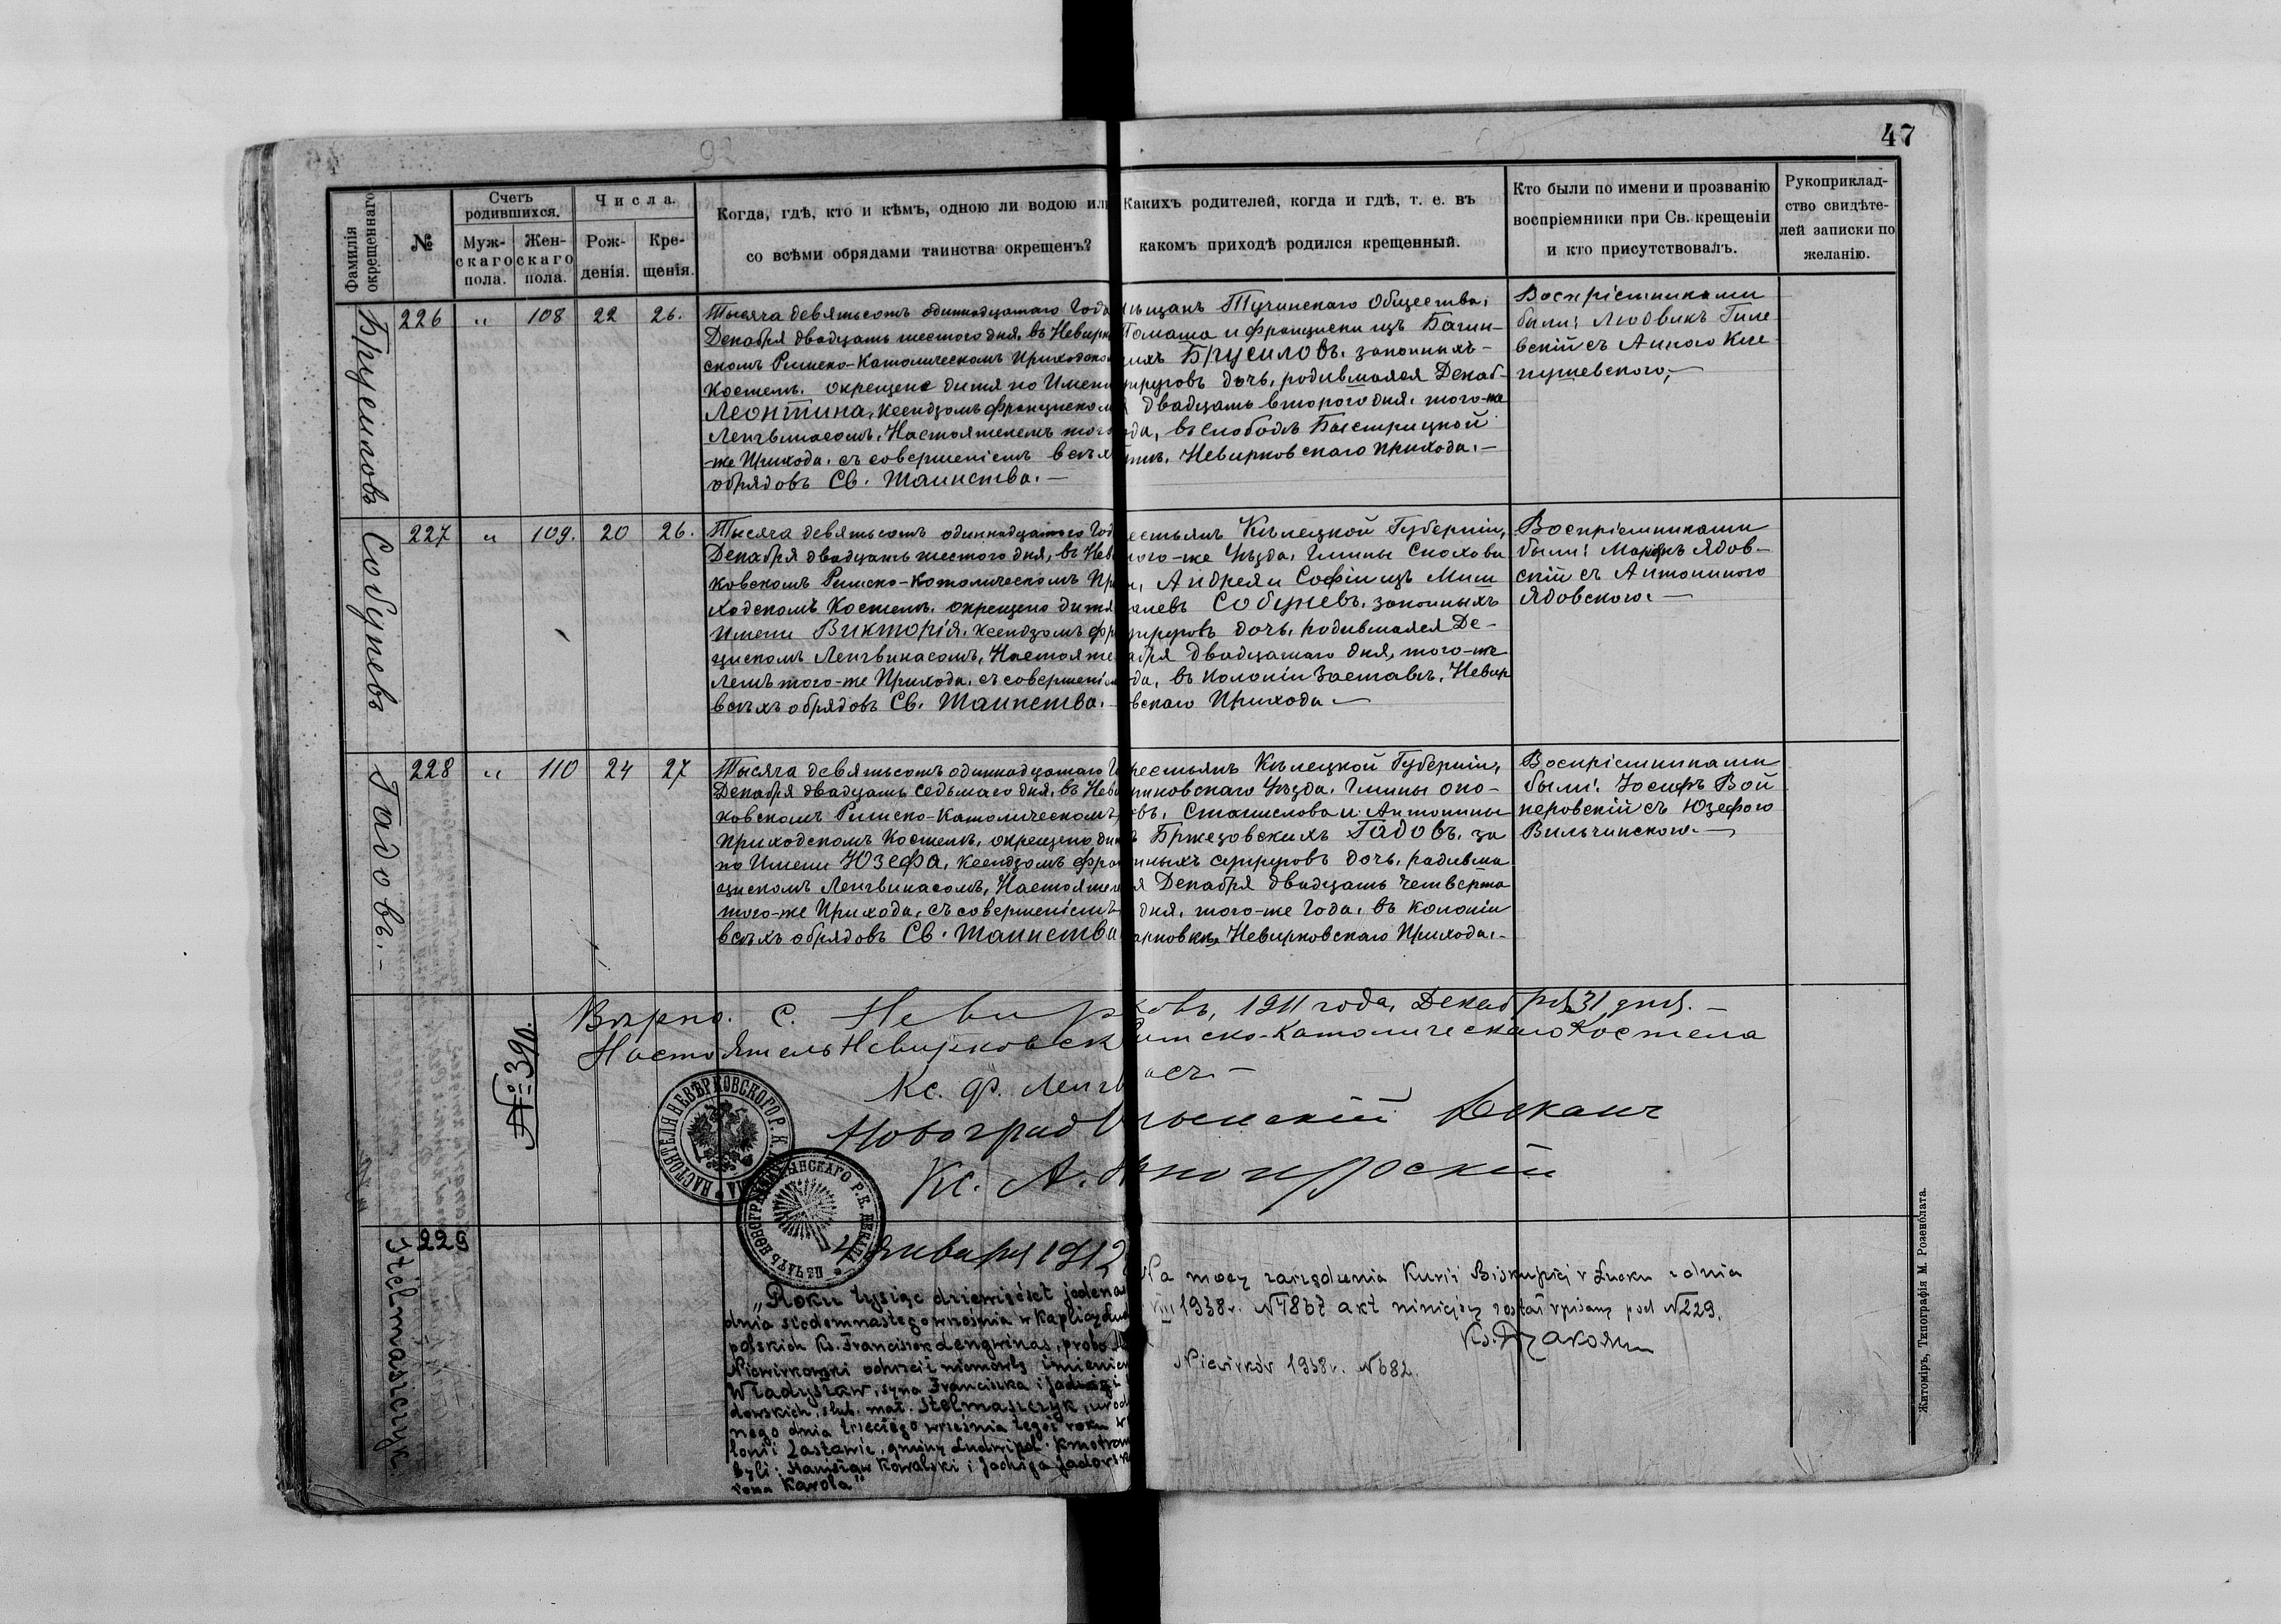 47
Фамилія окрещеннаго
№
Счетъ родившихся.
Мужскаго пола.
Женскаго пола.
Числа.
Рожденія.
Крещенія.
Когда, гдѣ, кто и кѣмъ, одною ли водою или
со всѣми обрядами таинства окрещенъ?
Какихъ родителей, когда и гдѣ, т. е. въ
какомъ приходѣ родился крещенный.
Кто были по имени и прозванію
воспріемники при Св. крещеніи
и кто присутствовалъ.
Рукоприклад-
ство свидѣте-
лей записки по
желанію.
Брусиловъ
226 " 108 22 26.
Тысяча девятьсотъ одиннадцатаго Года
Декабря двадцать шестого дня, въ Невирк
скомъ Римско-Католическомъ Приходско
Костелѣ. окрещено дитя по Имени
Леонтина, Ксендзомъ Францискомъ
Ленгвинасомъ, Настоятелемъ того
-же Прихода, съ совершеніемъ всѣх
обрядовъ Св. Таинства. —
мѣщанъ Тучинскаго Общества,
Томаша и Франциски изъ Багин-
скихъ Брусиловъ, законныхъ-
супруговъ дочь, родившаяся Декаб-
двадцать второго дня, того-же
ода, въ слободѣ Быстрицкой
Невирковскаго Прихода. —
Воспріемниками
были: Людвикъ Гиле-
вскій съ Анною Кне-
пушевского, —
Собуневъ
227 " 109. 20 26.
Тысяча девятьсотъ одиннадцатого Год
Декабря двадцать шестого дня, въ Нев
ковскомъ Римско-Католическомъ При
ходскомъ Костелѣ. окрещено дитя
Имени Викторія, Ксендзомъ Фр
цискомъ Ленгвинасомъ, Настояте
лемъ того-же Прихода, съ совершені
всѣхъ обрядовъ Св. Таинства. —
естьянъ Кѣлецкой Губерніи,
того-же Уѣзда, Гмины Снохови
Андрея и Софіи изъ Миш
Собуневъ, законныхъ
супруговъ дочь, родившаяся Де-
абря двадцатаго дня, того-же
ода, въ колоніи Заставѣ, Невир
вскаго Прихода —
Воспріемниками
были: Маріянъ Ядов-
скій съ Антониного
Ядовского. —
Гадовъ. -
228 " 110 24 27
Тысяча девятьсотъ одиннадцатаго Г
Декабря двадцать седьмаго дня, въ Неви
ковскомъ Римско-Католическомъ
Приходскомъ Костелѣ, окрещено ди
по Имени Юзефа, Ксендзомъ Фран
цискомъ Ленгвинасомъ, Настоятеле
того-же Прихода, съ совершеніемъ
всѣхъ обрядовъ Св. Таинства
рестьянъ Кѣлецкой Губерніи,
Уѣзда, Гмины око-
Станислова и Антонины
Бржезовскихъ Гадовъ, за
нныхъ супруговъ дочь, родивша
я Декабря двадцать четверта
дня, того-же Года, въ колоніи
Невирковскаго Прихода. -
Воспріемниками
были: Іосифъ Вой
церовскій съ Юзефого
Вильчинского. —
Вѣрно. С. Невирковъ, 1911 года, Декабря 31 дня. —
Настоятель Невирковск Римско-Католическаго Костела
Кс. Ф. Ленгв асъ —
№ 390.
Новоград Волынскій Деканъ
Кс. А.
4 Января 1912
НАСТОЯТЕЛЯ НЕВѢРКОВСКОГО Р. К.
ПЕЧАТЬ НОВОГРАДВОЛЫНСКАГО Р. К. ДЕКАНА
Stelmaszczyk
229
„Roku tysiąc dziewięćset jedenas
dnia siedemnastego września w kaplicy Lud
polskich Ks. Franciszek Lengwinas, probo
Niewirkowski ochrzcił niemowlę imieniem
Władysław, syna Franciszka i Jadwigi
dowskich, ślub. mał. Stelmaszczyk, urod
nego dnia trzeciego września tegoż roku w
lonii Zastawie, gminy Ludwipol. Kmotram
byli: Stanisław Kowalski i Jadwiga Jadowsk
żona Karola"
Na mocy zarządzenia Kurii Biskupiej w Łucku z dnia
VIII 1938 r. N 4867 akt niniejszy został wpisany pod N 229.
Niewirków 1938 r. N 682.
Житоміръ, Типографія М. Розенблата.